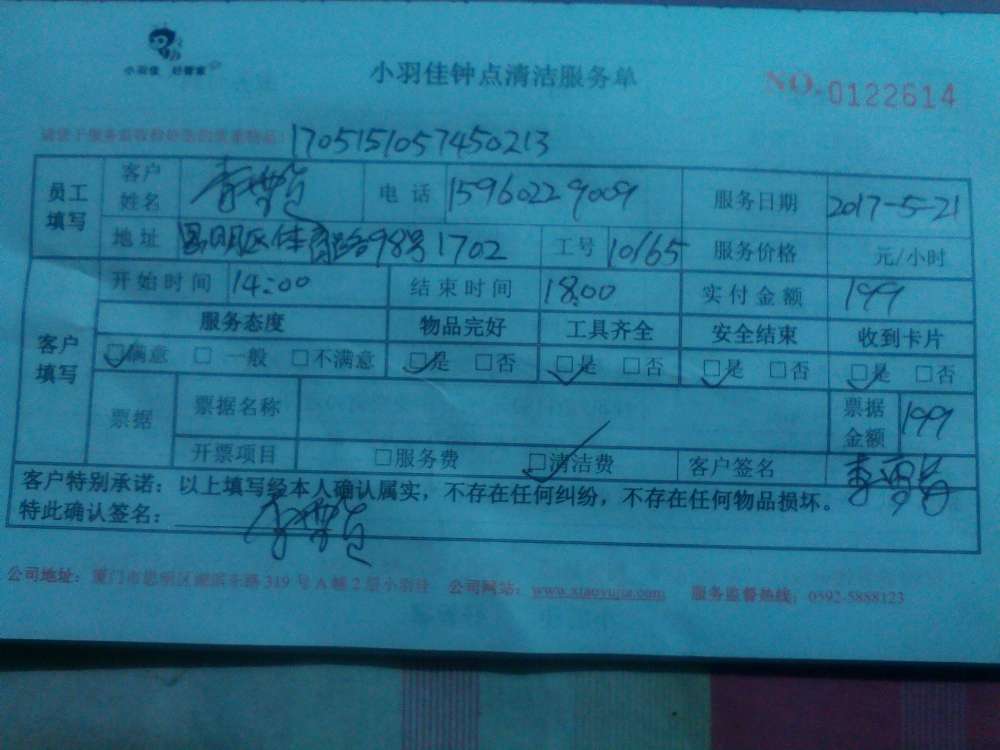 小羽佳 好管家
小羽佳钟点清洁服务单
NO. 0122614
1705151057450213
员工填写 客户姓名 电话 15960229009 服务日期 2017-5-21
地址 思明区体育路98号1702 工号 10165 服务价格 元/小时
客户填写 开始时间 14:00 结束时间 18:00 实付金额 199
服务态度 物品完好 工具齐全 安全结束 收到卡片
□满意 □一般 □不满意 □是 □否 □是 □否 □是 □否 □是 □否
票据 票据名称 票据金额 199
开票项目 □服务费 □清洁费 客户签名
客户特别承诺：以上填写经本人确认属实，不存在任何纠纷，不存在任何物品损坏。
特此确认签名：
公司地址：厦门市思明区湖滨东路319号A幢2层小羽佳 公司网站：www.xiaoyujia.com 服务监督热线：0592-5888123